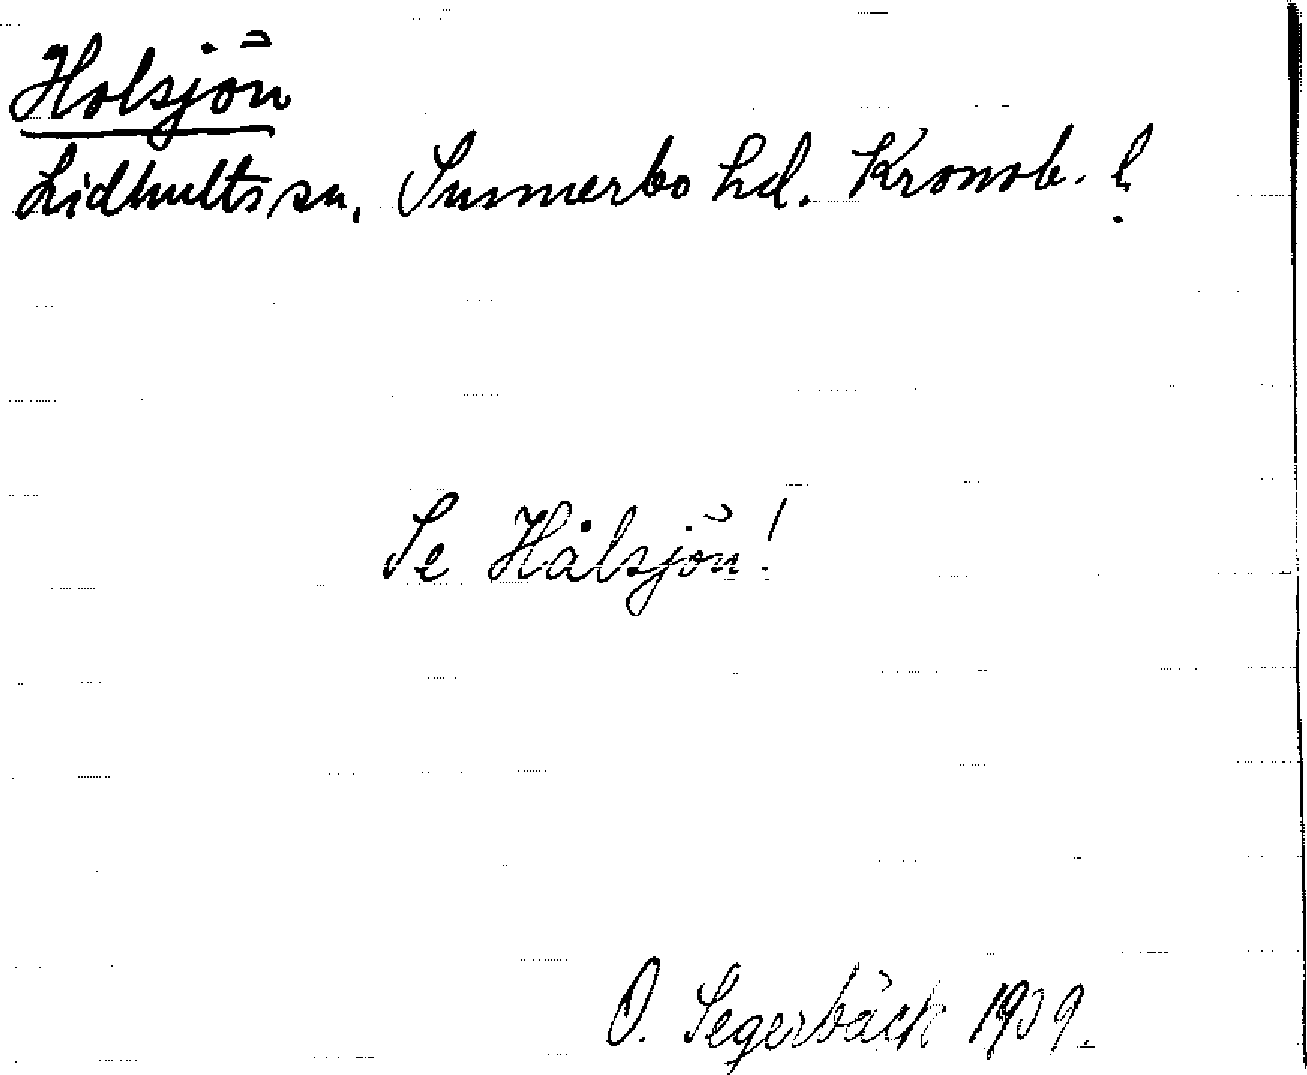 Holsjön
Lidhults sn, Sunnerbo hd. Kronob. l.
Se Hålsjön!
O. Segerbäck 1939.